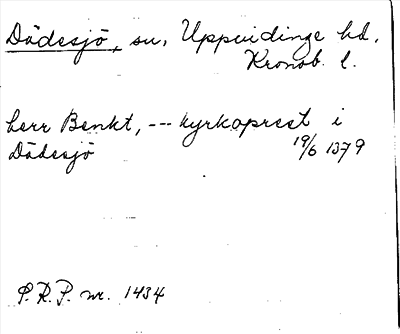 Dädesjö, sn, Uppvidinge hd,
Kronob. l.
herr Benkt, --- kyrkoprest i
Dädesjö 19/6 1379
P.R.P. nr. 1434